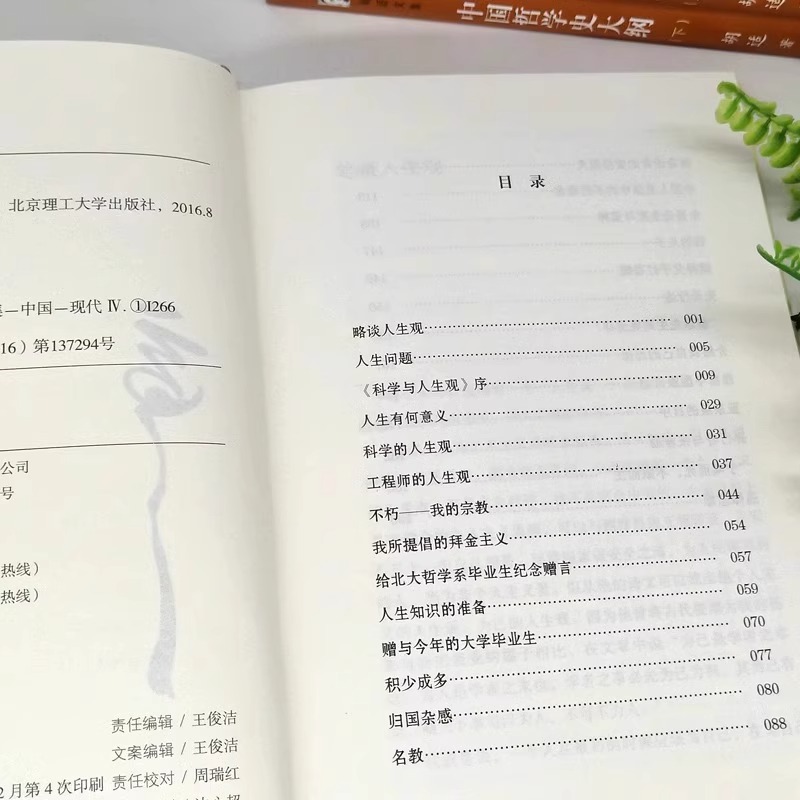 中国哲学史大纲
（下）
胡适 著
北京理工大学出版社，2016.8
—中国—现代 Ⅳ. ①I266
16）第137294号
公司
号
热线）
热线）
责任编辑 / 王俊洁
文案编辑 / 王俊洁
2月第4次印刷 责任校对 / 周瑞红
目 录
略谈人生观 001
人生问题 005
《科学与人生观》序 009
人生有何意义 029
科学的人生观 031
工程师的人生观 037
不朽——我的宗教 044
我所提倡的拜金主义 054
给北大哲学系毕业生纪念赠言 057
人生知识的准备 059
赠与今年的大学毕业生 070
积少成多 077
归国杂感 080
名教 088